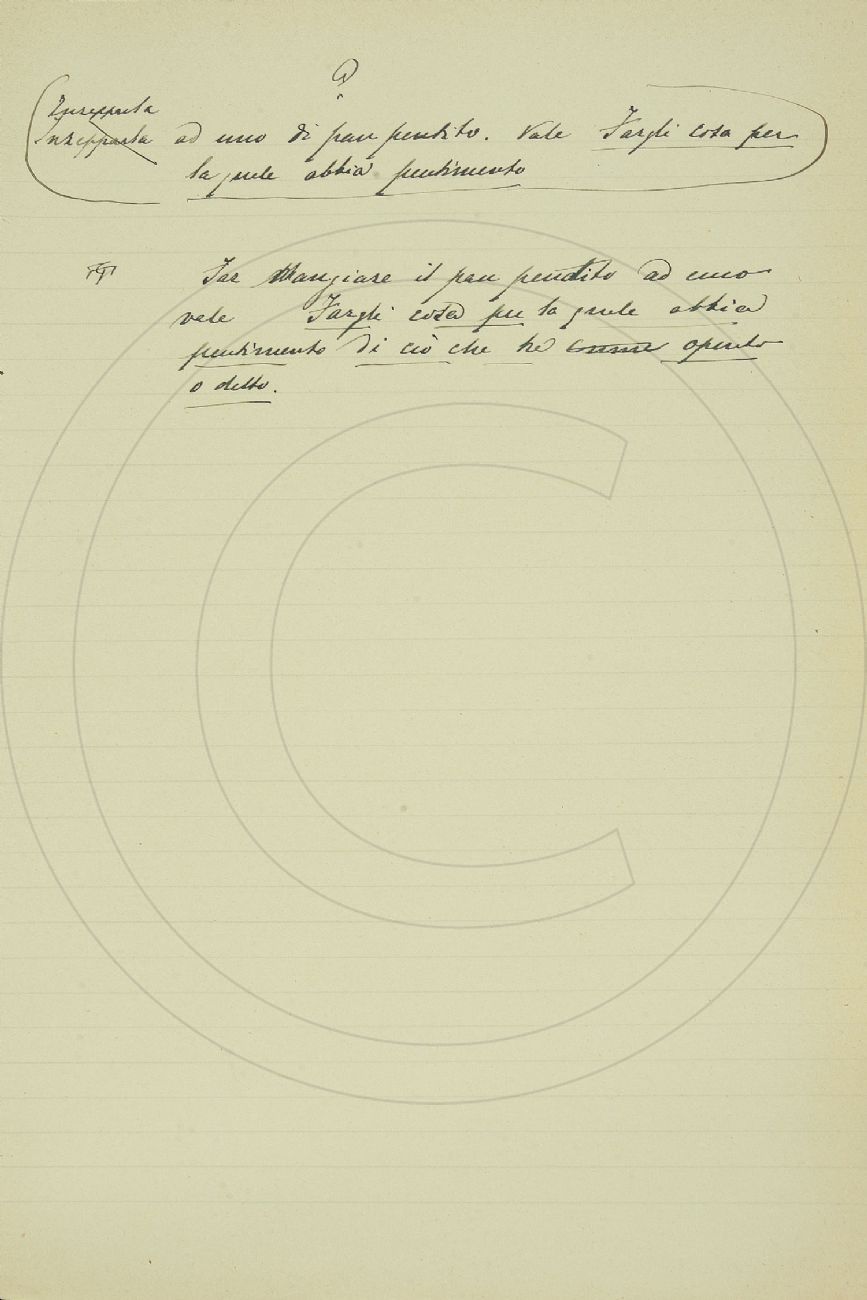 Inzeppata
Inzeppata ad uno di pan pentito. Vale Fargli cosa per
la quale abbia pentimento
Far Mangiare il pan pentito ad uno
vale Fargli cosa per la quale abbia
pentimento di ciò che ha operato
o detto.